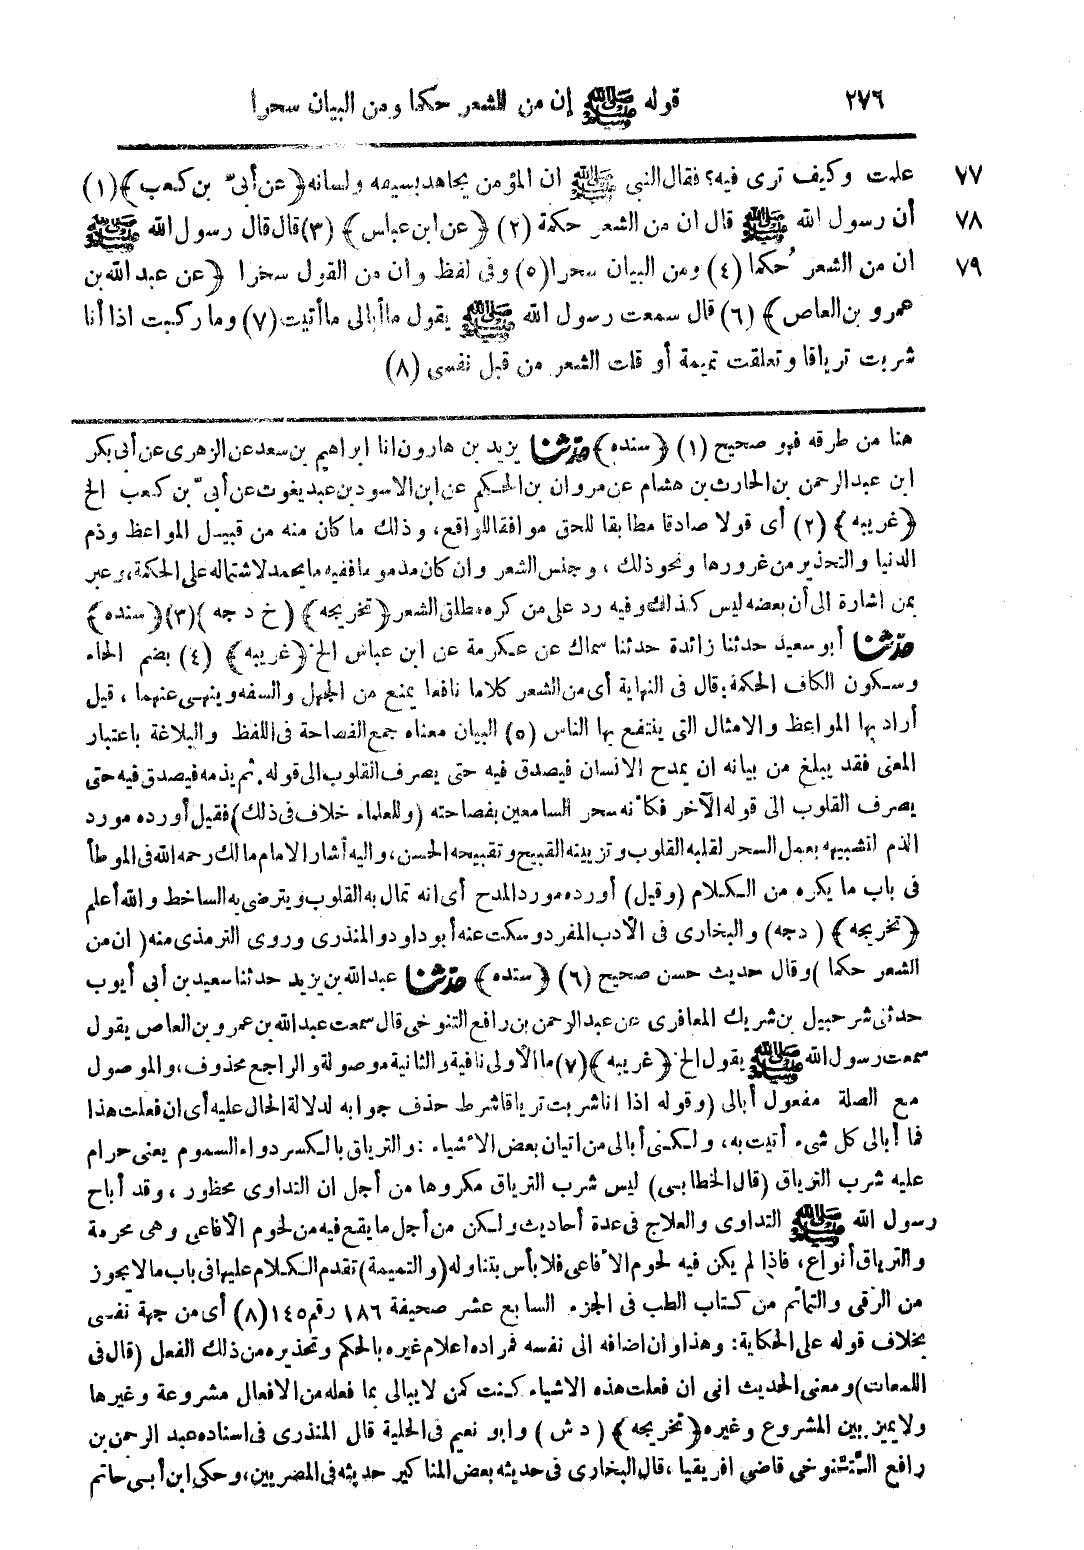 ٢٧٦ قوله ﷺ إن من الشعر حكما ومن البيان سحرا
٧٧ علمت وكيف ترى فيه؟ فقال النبى ﷺ ان المؤمن يجاهد بسيفه ولسانه ﴿عن أبىّ بن كعب﴾ (١)
٧٨ أن رسول الله ﷺ قال ان من الشعر حكمة (٢) ﴿عن ابن عباس﴾ (٣) قال قال رسول الله ﷺ
٧٩ ان من الشعر حُكما (٤) ومن البيان سحرا (٥) وفى لفظ وان من القول سحرا ﴿عن عبد الله بن
عمرو بن العاص﴾ (٦) قال سمعت رسول الله ﷺ يقول ما أبالى ما أتيت (٧) وما ركبت اذا أنا
شربت ترياقا وتعلقت تميمة أو قلت الشعر من قبل نفسى (٨)
هنا من طرقه فهو صحيح (١) ﴿سنده﴾ حدّثنا يزيد بن هارون انا ابراهيم بن سعد عن الزهرى عن أبى بكر
ابن عبد الرحمن بن الحارث بن هشام عن مروان بن الحكم عن ابن الاسود بن عبد يغوث عن أبىّ بن كعب الخ
﴿غريبه﴾ (٢) أى قولا صادقا مطابقا للحق موافقا للواقع، وذلك ما كان منه من قبيل المواعظ وذم
الدنيا والتحذير من غرورها ونحو ذلك، وجنس الشعر وان كان مذموما ففيه ما يحمد لاشتماله على الحكمة، وعبر
بمن اشارة الى أن بعضه ليس كذلك وفيه رد على من كره مطلق الشعر ﴿تخريجه﴾ (خ د جه) (٣) ﴿سنده﴾
حدّثنا أبو سعيد حدثنا زائدة حدثنا سماك عن عكرمة عن ابن عباس الخ ﴿غريبه﴾ (٤) بضم الحاء
وسكون الكاف الحكمة: قال فى النهاية أى من الشعر كلاما نافعا يمنع من الجهل والسفه وينهى عنهما، قيل
أراد بها المواعظ والامثال التى ينتفع بها الناس (٥) البيان معناه جمع الفصاحة فى اللفظ والبلاغة باعتبار
المعنى فقد يبلغ من بيانه ان يمدح الانسان فيصدق فيه حتى يصرف القلوب الى قوله. ثم يذمه فيصدق فيه حتى
يصرف القلوب الى قوله الآخر فكأنه سحر السامعين بفصاحته (وللعلماء خلاف فى ذلك) فقيل أورده مورد
الذم لتشبيهه بعمل السحر لقلبه القلوب وتزيينه القبيح وتقبيحه الحسن، واليه أشار الامام مالك رحمه الله فى الموطأ
فى باب ما يكره من الكلام (وقيل) أورده مورد المدح أى انه تمال به القلوب ويترضى به الساخط والله أعلم
﴿تخريجه﴾ (د جه) والبخارى فى الأدب المفرد وسكت عنه أبو داود والمنذرى وروى الترمذى منه (ان من
الشعر حكما) وقال حديث حسن صحيح (٦) ﴿سنده﴾ حدّثنا عبد الله بن يزيد حدثنا سعيد بن أبى أيوب
حدثنى شرحبيل بن شريك المعافرى عن عبد الرحمن بن رافع التنوخى قال سمعت عبد الله بن عمرو بن العاص يقول
سمعت رسول الله ﷺ يقول الخ ﴿غريبه﴾ (٧) ما الأولى نافية والثانية موصولة والراجع محذوف، والموصول
مع الصلة مفعول أبالى (وقوله اذا انا شربت ترياقا شرط حذف جوابه لدلالة الحال عليه أى ان فعلت هذا
فما أبالى كل شىء أتيت به، ولكنى أبالى من اتيان بعض الأشياء: والترياق بالكسر دواء السموم يعنى حرام
عليه شرب الترياق (قال الخطابى) ليس شرب الترياق مكروها من أجل ان التداوى محظور، وقد أباح
رسول الله ﷺ التداوى والعلاج فى عدة أحاديث ولكن من أجل ما يقع فيه من لحوم الأفاعى وهى محرمة
والترياق أنواع، فاذا لم يكن فيه لحوم الأفاعى فلا بأس بتناوله (والتميمة) تقدم الكلام عليها فى باب ما لا يجوز
من الرقى والتمائم من كتاب الطب فى الجزء السابع عشر صحيفة ١٨٦ رقم ١٤٥ (٨) أى من جهة نفسى
بخلاف قوله على الحكاية: وهذا وان اضافه الى نفسه فمراده اعلام غيره بالحكم وتحذيره من ذلك الفعل (قال فى
اللمعات) ومعنى الحديث انى ان فعلت هذه الاشياء كنت كمن لا يبالى بما فعله من الافعال مشروعة وغيرها
ولا يميز بين المشروع وغيره ﴿تخريجه﴾ (د ش) وابو نعيم فى الحلية قال المنذرى فى اسناده عبد الرحمن بن
رافع التنوخى قاضى افريقيا، قال البخارى فى حديثه بعض المناكير حديثه فى المصريين، وحكى ابن أبى حاتم